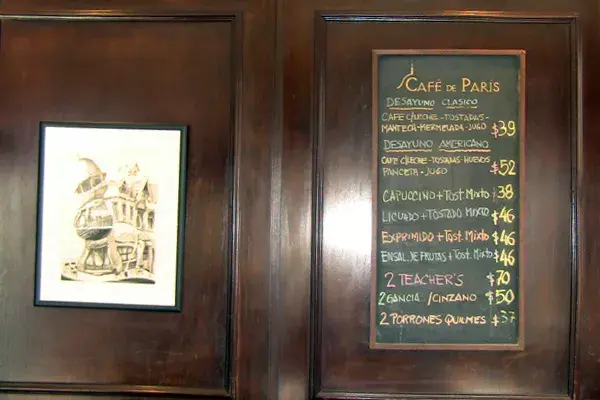 CAFÉ DE PARÍS
DESAYUNO CLASICO
CAFE C/LECHE-TOSTADAS-
MANTECA-MERMELADA-JUGO $39
DESAYUNO AMERICANO
CAFE C/LECHE-TOSTADAS HUEVOS
PANCETA-JUGO $52
CAPUCCINO+TOST. MIXTO $38
LICUADO+TOSTADO MIXTO $46
EXPRIMIDO+TOST. MIXTO $46
ENSAL. DE FRUTAS+TOST. MIXTO $46
2 TEACHER'S $70
2 GANCIA/CINZANO $50
2 PORRONES QUILMES $37